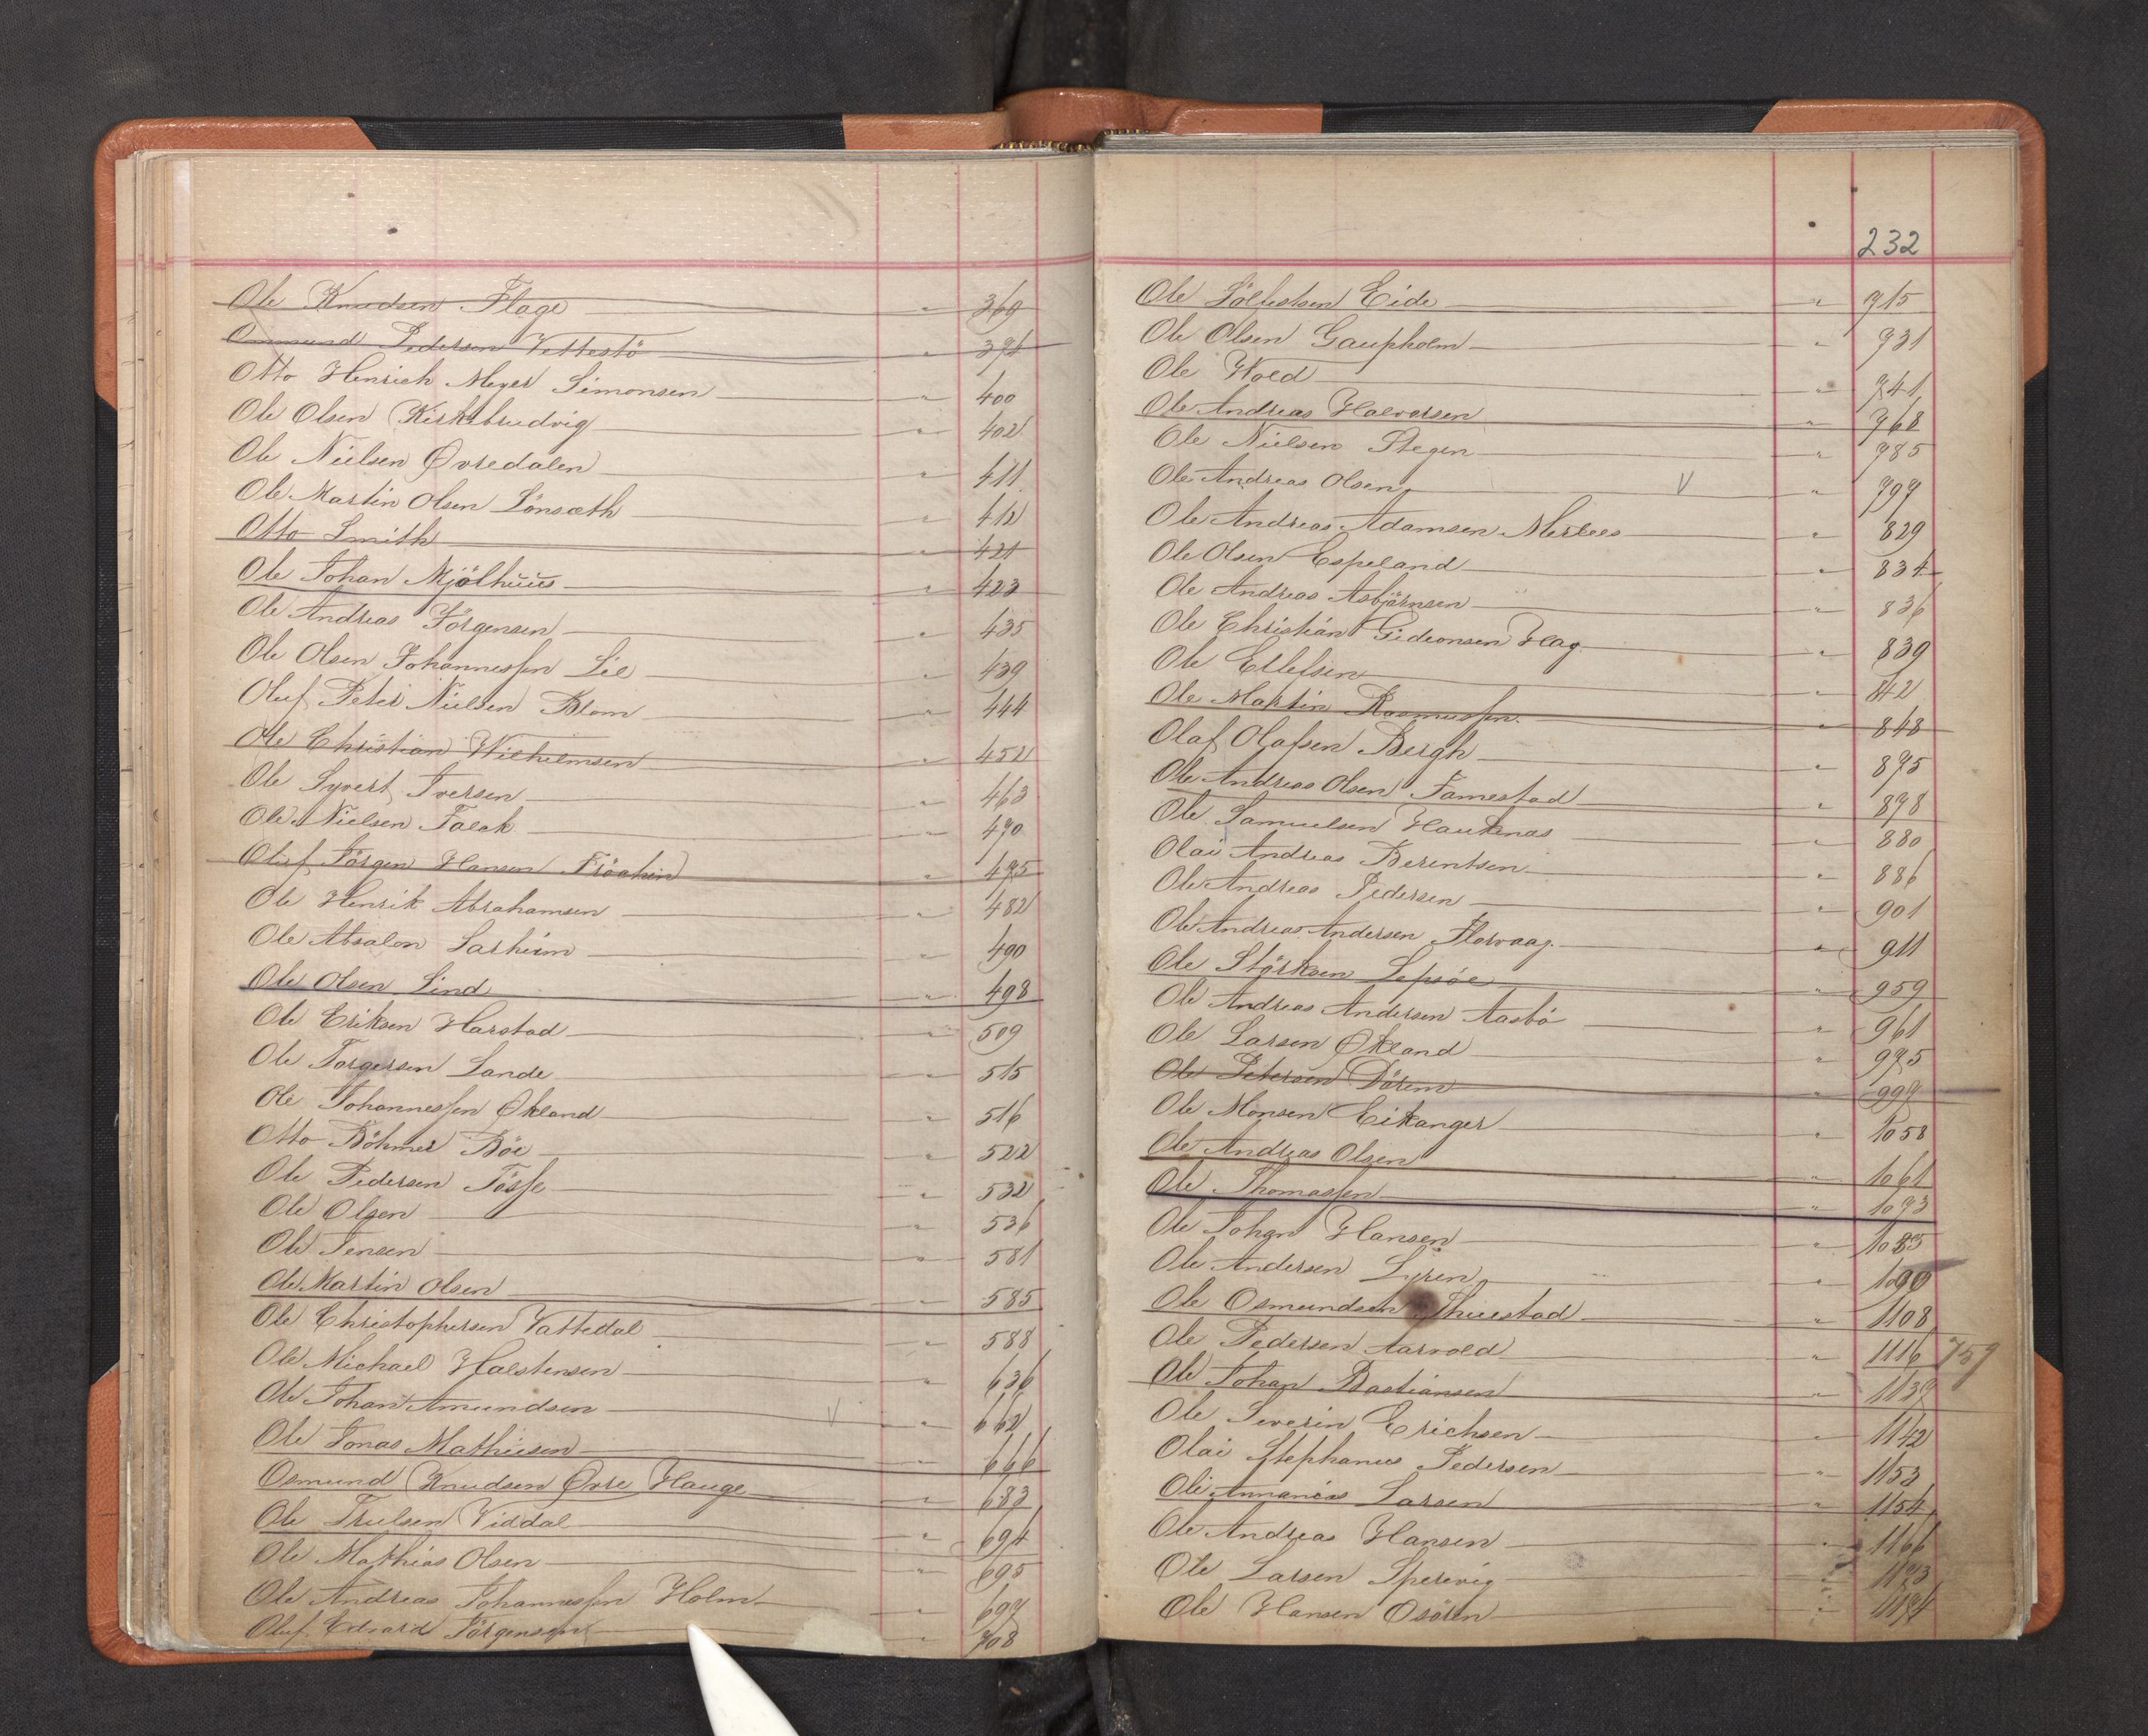 Ole Knudsen Flage " 369
Ommund Pedersen Vettestö " 394
Otto Henrich Meyer Simonsen " 400
Ole Olsen Kirkebrudvig " 402
Ole Nielsen Øvredalen " 411
Ole Martin Olsen Lönsæth " 412
Otto Smith " 421
Ole Johan Mjölhuus " 423
Ole Andreas Jörgensen " 435
Ole Olsen Johannessen Lie " 439
Oluf Peter Nielsen Blom " 444
Ole Christian Wilhelmsen " 452
Ole Syvert Iversen " 463
Ole Nielsen Falck " 470
Oluf Jörgen Hansen " 475
Ole Henrik Abrahamsen " 482
Ole Absalon Sarheim " 490
Ole Olsen Lind " 498
Ole Eriksen Harstad " 509
Ole Torgersen Lande " 515
Ole Johannessen Økland " 516
Otto Böhmer Böe " 522
Ole Pedersen Tösse " 532
Ole Olsen " 536
Ole Jensen " 581
Ole Martin Olsen " 585
Ole Christophersen Vattedal " 588
Ole Michael Halstensen " 636
Ole Johan Amundsen V " 662
Ole Jonas Mathiesen " 666
Osmund Knudsen Øvre Hauge " 683
Ole Trulsen Viddal " 694
Ole Mathias Olsen " 695
Ole Andreas Johannessen Holm " 697
Oluf Edvard Jörgensen " 708
232
Ole Eide " 715
Ole Olsen Gaupholm " 731
Ole Wold " 741
Ole Andreas Halvorsen " 768
Ole Nielsen Stegen " 785
Ole Andreas Olsen V " 797
Ole Andreas Adamsen Merlees " 829
Ole Olsen Espeland " 834
Ole Andreas Asbjörnsen " 836
Ole Christian Gideonsen Flag " 839
Ole Ellefsen " 842
Ole Martin Rasmussen " 848
Olaf Olafsen Bergh " 875
Ole Andreas Olsen Famestad " 878
Ole Samuelsen Hauknas " 880
Olai Andreas Berentsen " 886
Ole Andreas Pedersen " 901
Ole Andreas Andersen Florvaag " 911
Ole Störksen Sepsöe " 959
Ole Andreas Andersen Aasbö " 961
Ole Larsen Økland " 975
Ole Petersen Dörum " 999
Ole Monsen Eikanger " 1058
Ole Andreas Olsen " 1061
Ole Thomassen " 1073
Ole Johan Hansen " 1085
Ole Andersen Lyren " 1090
Ole Osmundsen Thuestad " 1108
Ole Pedersen Aarvold " 1116 759
Ole Johan Bastiansen " 1139
Ole Severin Erichsen " 1142
Olai Stephanus Pedersen " 1153
Ole Larsen " 1154
Ole Andreas Hansen " 1166
Ole Larsen Sperevig " 1173
Ole Hansen Osören " 1174